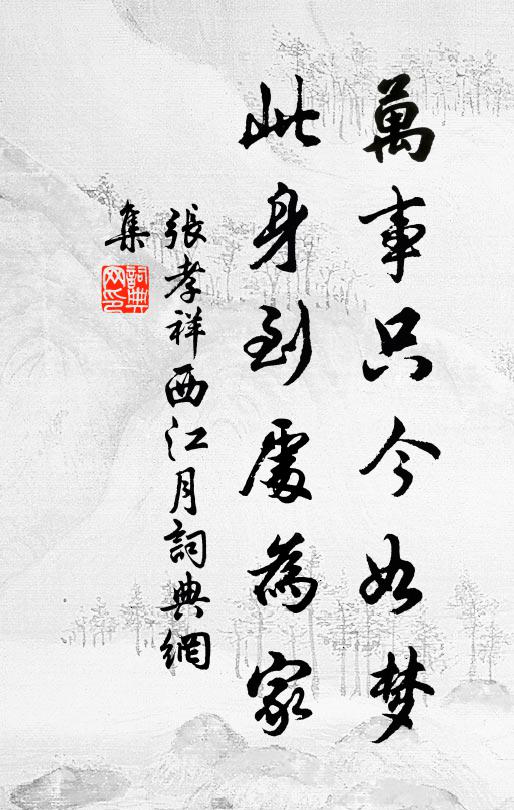 萬事只今如梦
此身到處為家
張孝祥西江月詞典網
集
詞典
网印